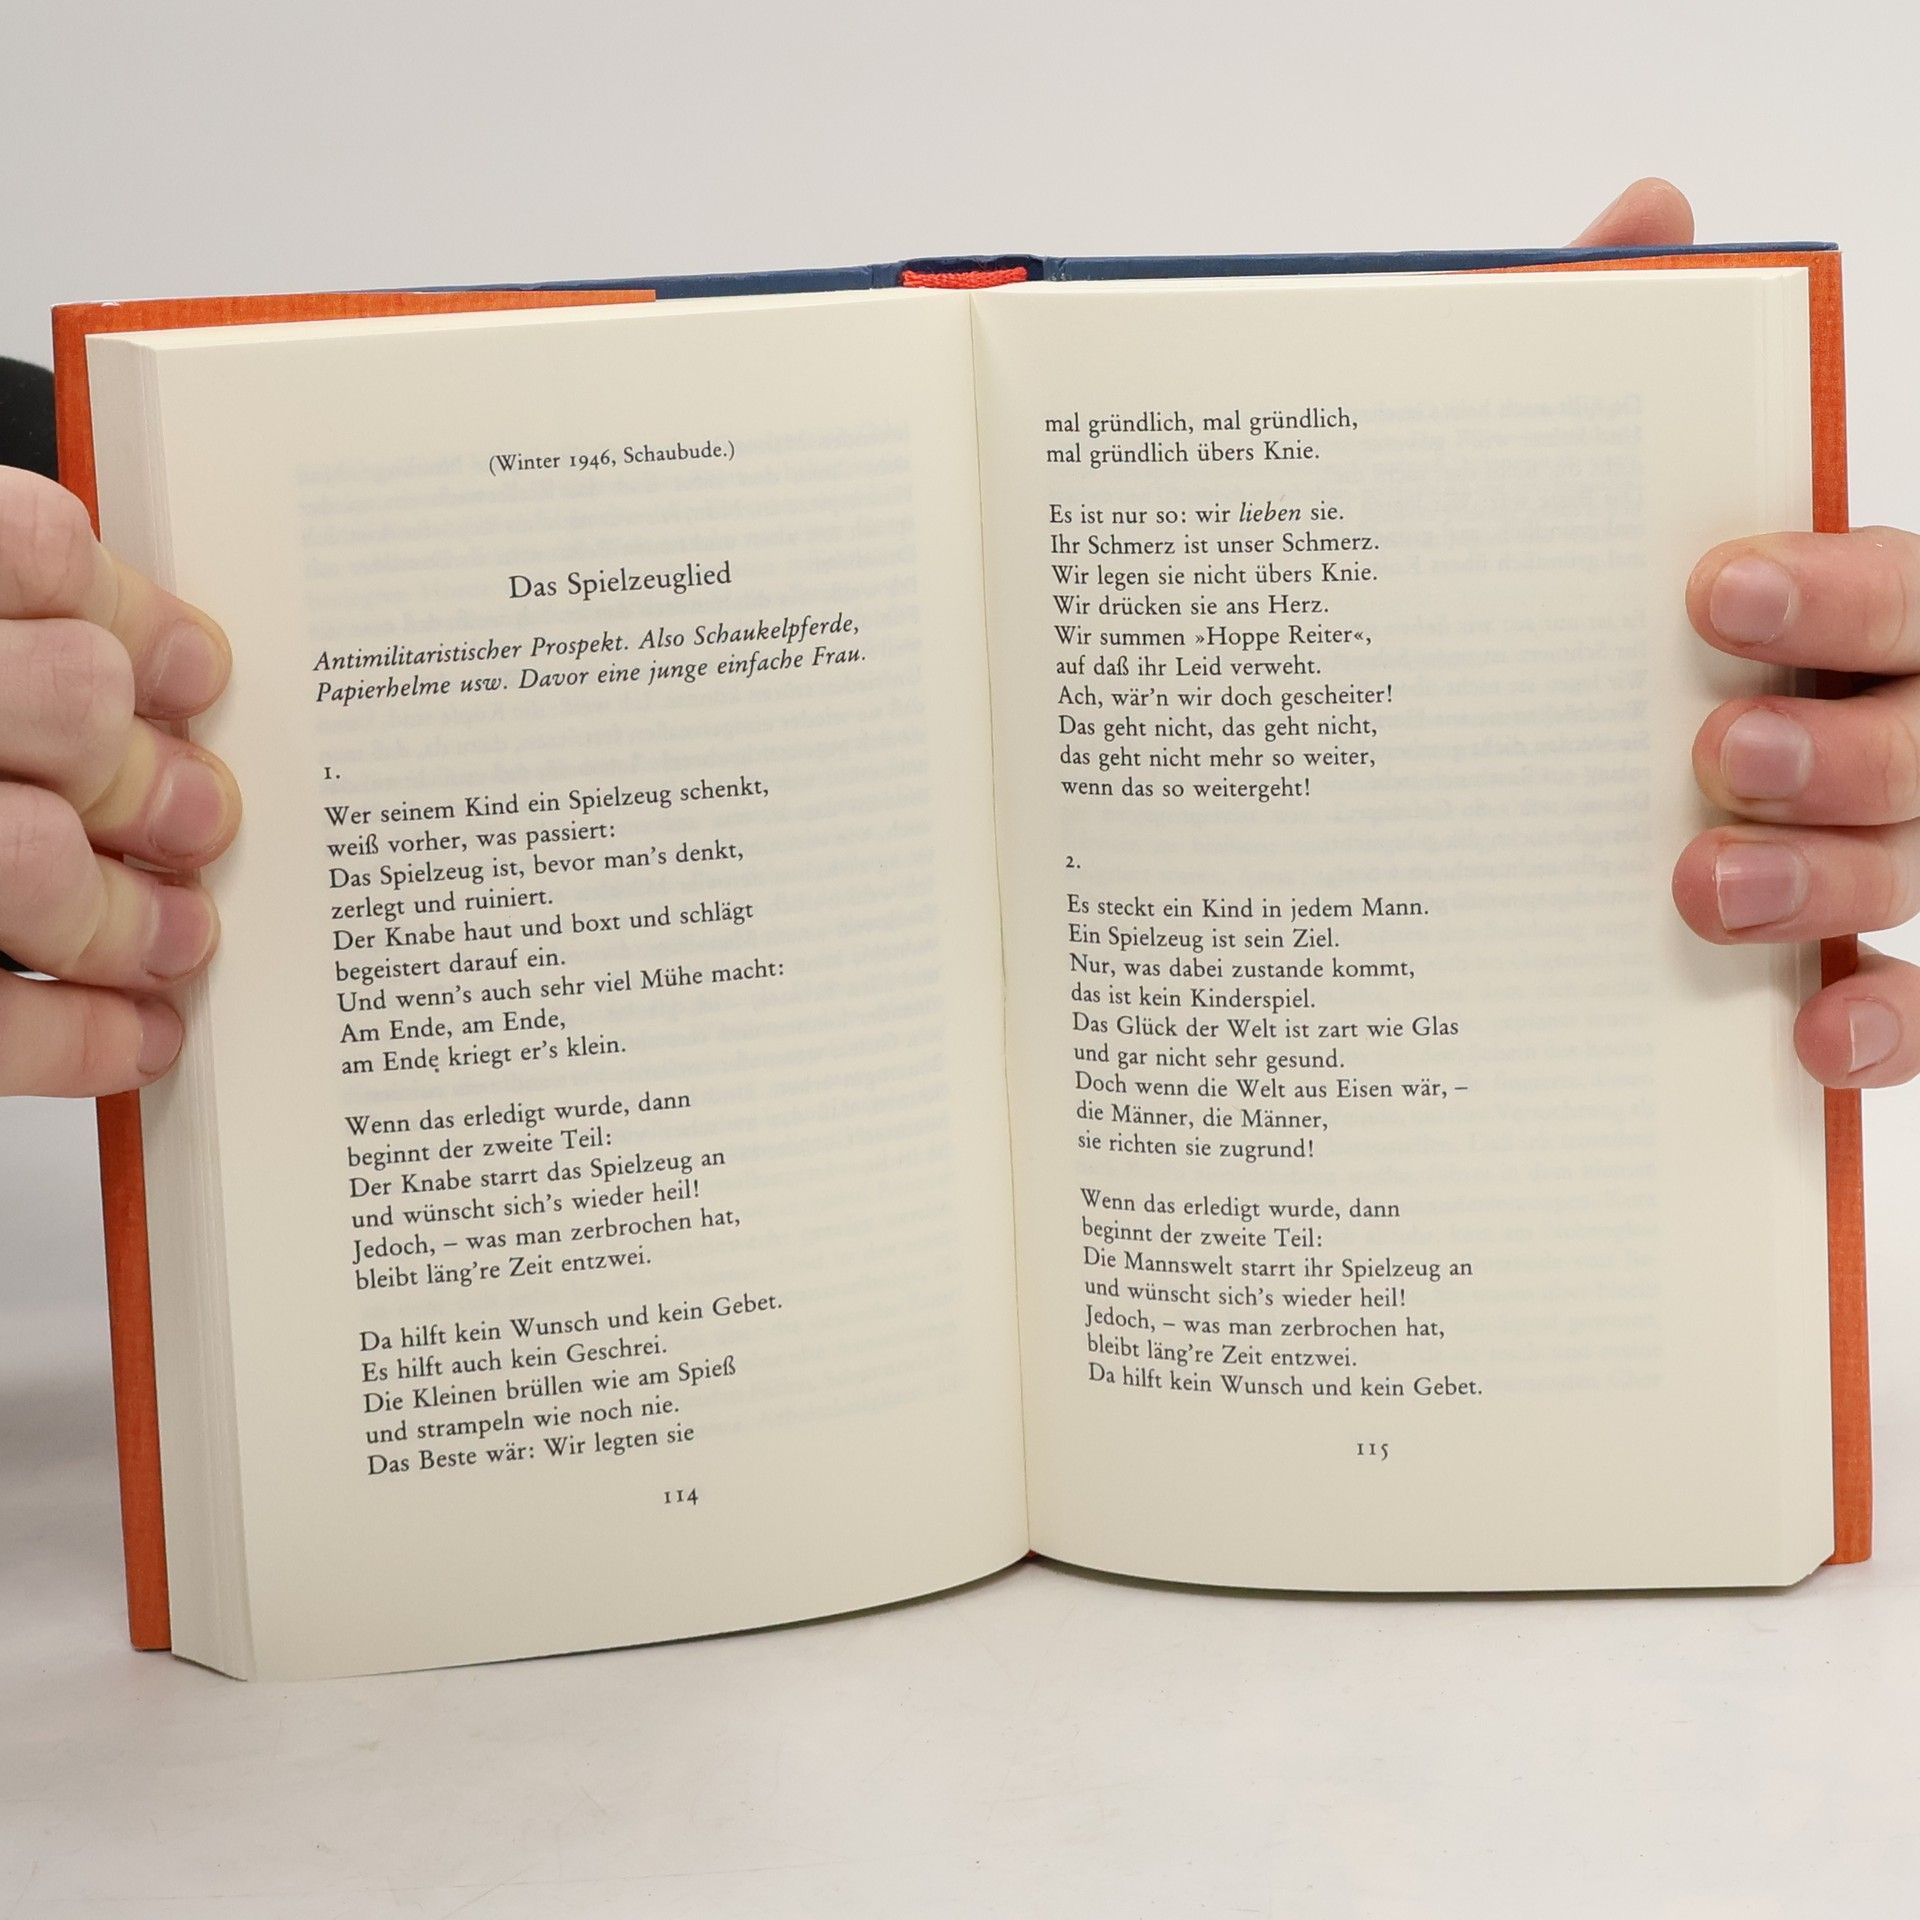 (Winter 1946, Schaubude.)
Das Spielzeuglied
Antimilitaristischer Prospekt. Also Schaukelpferde,
Papierhelme usw. Davor eine junge einfache Frau.
1.
Wer seinem Kind ein Spielzeug schenkt,
weiß vorher, was passiert:
Das Spielzeug ist, bevor man's denkt,
zerlegt und ruiniert.
Der Knabe haut und boxt und schlägt
begeistert darauf ein.
Und wenn's auch sehr viel Mühe macht:
Am Ende, am Ende,
am Ende kriegt er's klein.
Wenn das erledigt wurde, dann
beginnt der zweite Teil:
Der Knabe starrt das Spielzeug an
und wünscht sich's wieder heil!
Jedoch, – was man zerbrochen hat,
bleibt läng're Zeit entzwei.
Da hilft kein Wunsch und kein Gebet.
Es hilft auch kein Geschrei.
Die Kleinen brüllen wie am Spieß
und strampeln wie noch nie.
Das Beste wär: Wir legten sie
114
mal gründlich, mal gründlich,
mal gründlich übers Knie.
Es ist nur so: wir lieben sie.
Ihr Schmerz ist unser Schmerz.
Wir legen sie nicht übers Knie.
Wir drücken sie ans Herz.
Wir summen »Hoppe Reiter«,
auf daß ihr Leid verweht.
Ach, wär'n wir doch gescheiter!
Das geht nicht, das geht nicht,
das geht nicht mehr so weiter,
wenn das so weitergeht!
2.
Es steckt ein Kind in jedem Mann.
Ein Spielzeug ist sein Ziel.
Nur, was dabei zustande kommt,
das ist kein Kinderspiel.
Das Glück der Welt ist zart wie Glas
und gar nicht sehr gesund.
Doch wenn die Welt aus Eisen wär, –
die Männer, die Männer,
sie richten sie zugrund!
Wenn das erledigt wurde, dann
beginnt der zweite Teil:
Die Mannswelt starrt ihr Spielzeug an
und wünscht sich's wieder heil!
Jedoch, – was man zerbrochen hat,
bleibt läng're Zeit entzwei.
Da hilft kein Wunsch und kein Gebet.
115